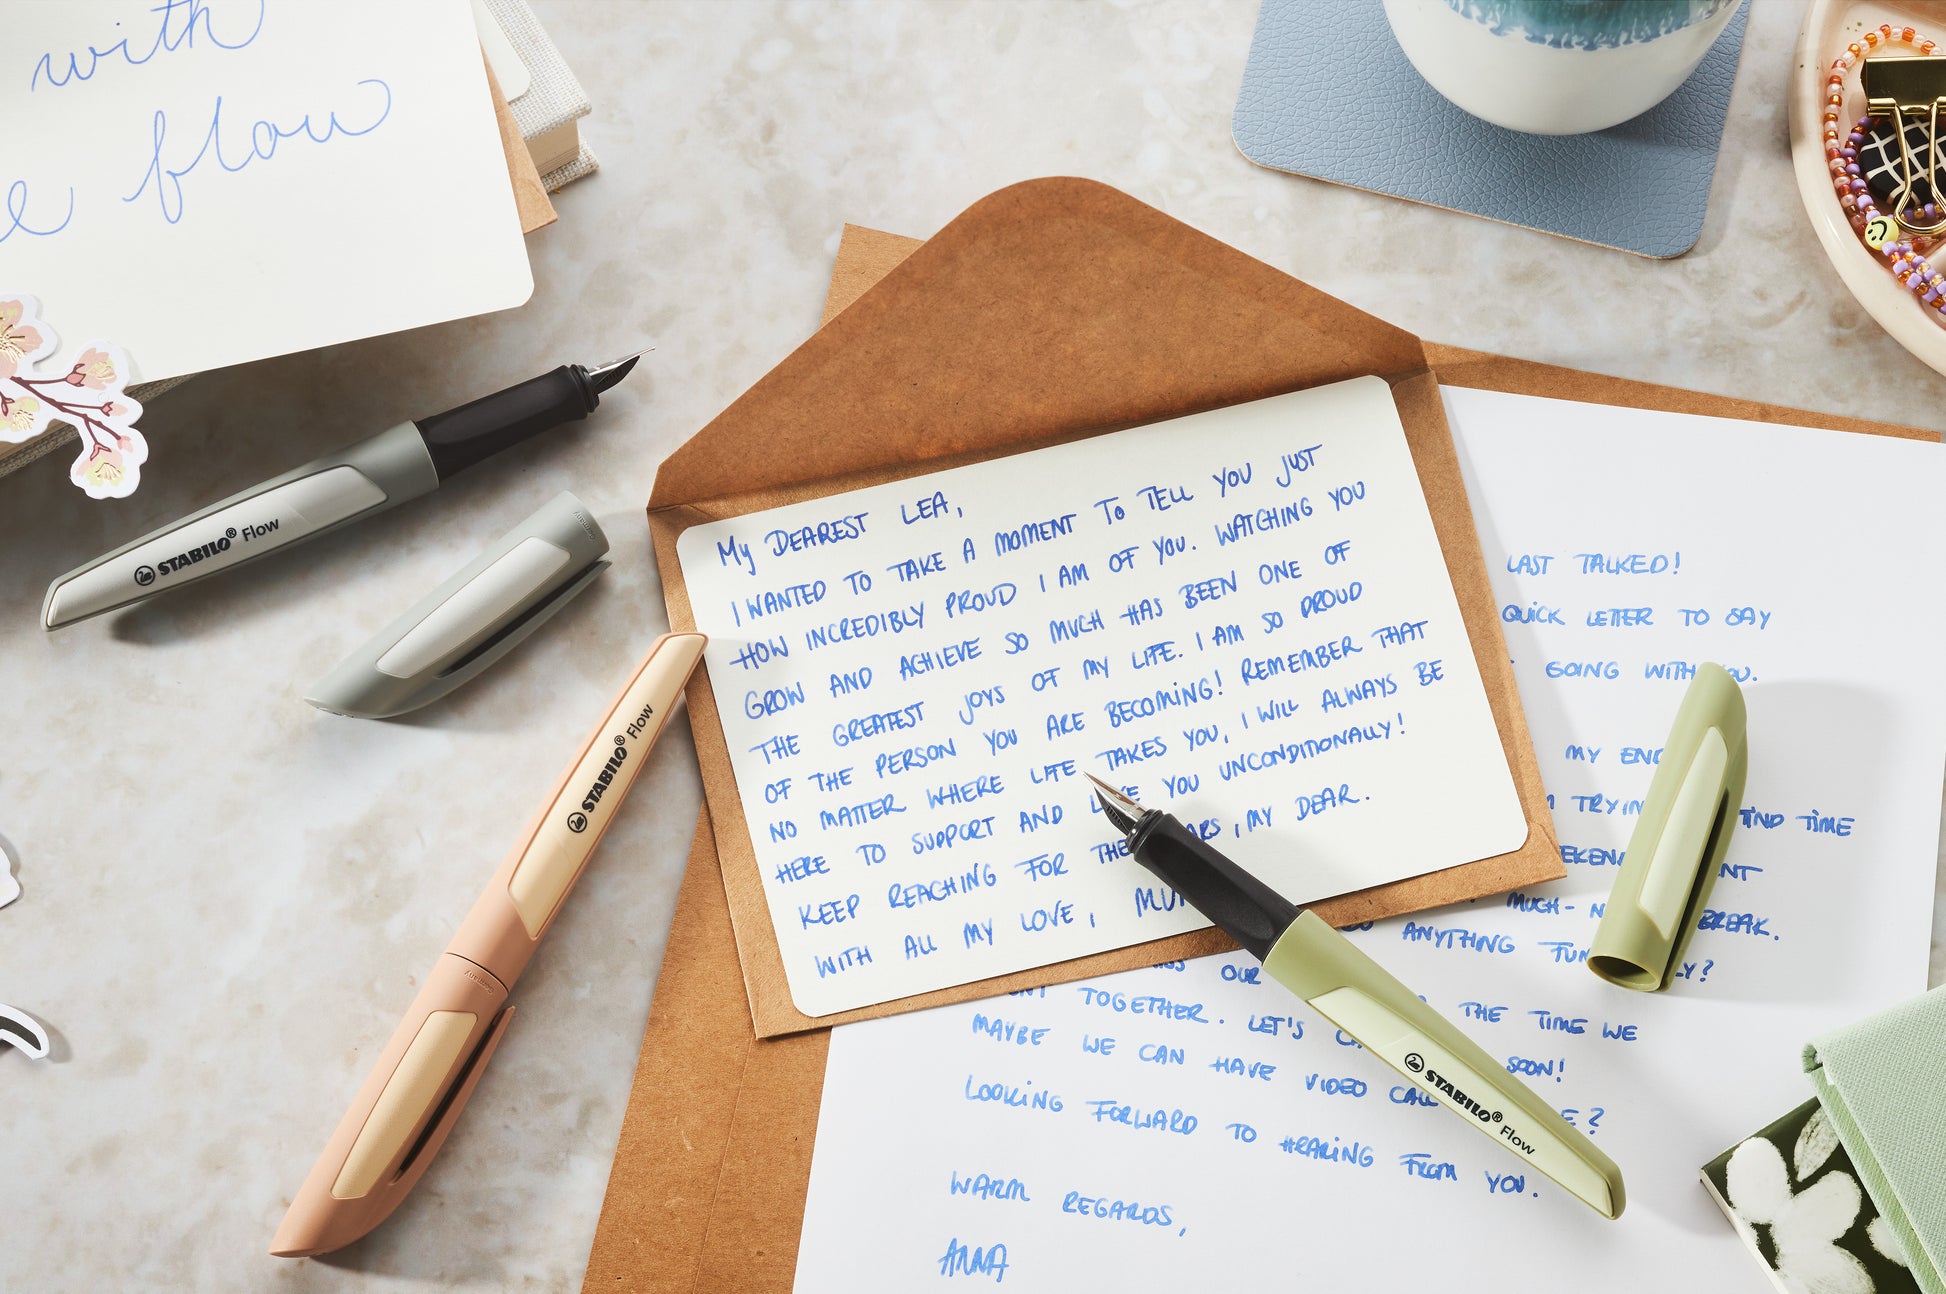 with
e flow
STABILO® Flow
Germany
STABILO® Flow
Germany
MY DEAREST LEA,
I WANTED TO TAKE A MOMENT TO TELL YOU JUST
HOW INCREDIBLY PROUD I AM OF YOU. WATCHING YOU
GROW AND ACHIEVE SO MUCH HAS BEEN ONE OF
THE GREATEST JOYS OF MY LIFE. I AM SO PROUD
OF THE PERSON YOU ARE BECOMING! REMEMBER THAT
NO MATTER WHERE LIFE TAKES YOU, I WILL ALWAYS BE
HERE TO SUPPORT AND YOU UNCONDITIONALLY!
KEEP REACHING FOR THE , MY DEAR.
WITH ALL MY LOVE,
LAST TALKED!
QUICK LETTER TO SAY
GOING WITH YOU.
MY
TIME
MUCH- BREAK.
ANYTHING
OUR
TOGETHER. LET'S THE TIME WE
MAYBE WE CAN HAVE VIDEO CALL SOON!
LOOKING FORWARD TO HEARING FROM YOU.
WARM REGARDS,
ANNA
STABILO® Flow